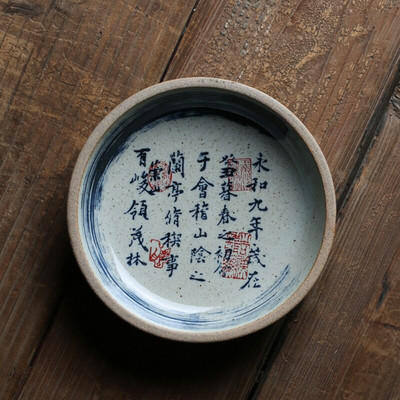 永和九年歲在
癸丑暮春之初會
于會稽山陰之
蘭亭脩禊事
百崇峻領茂林